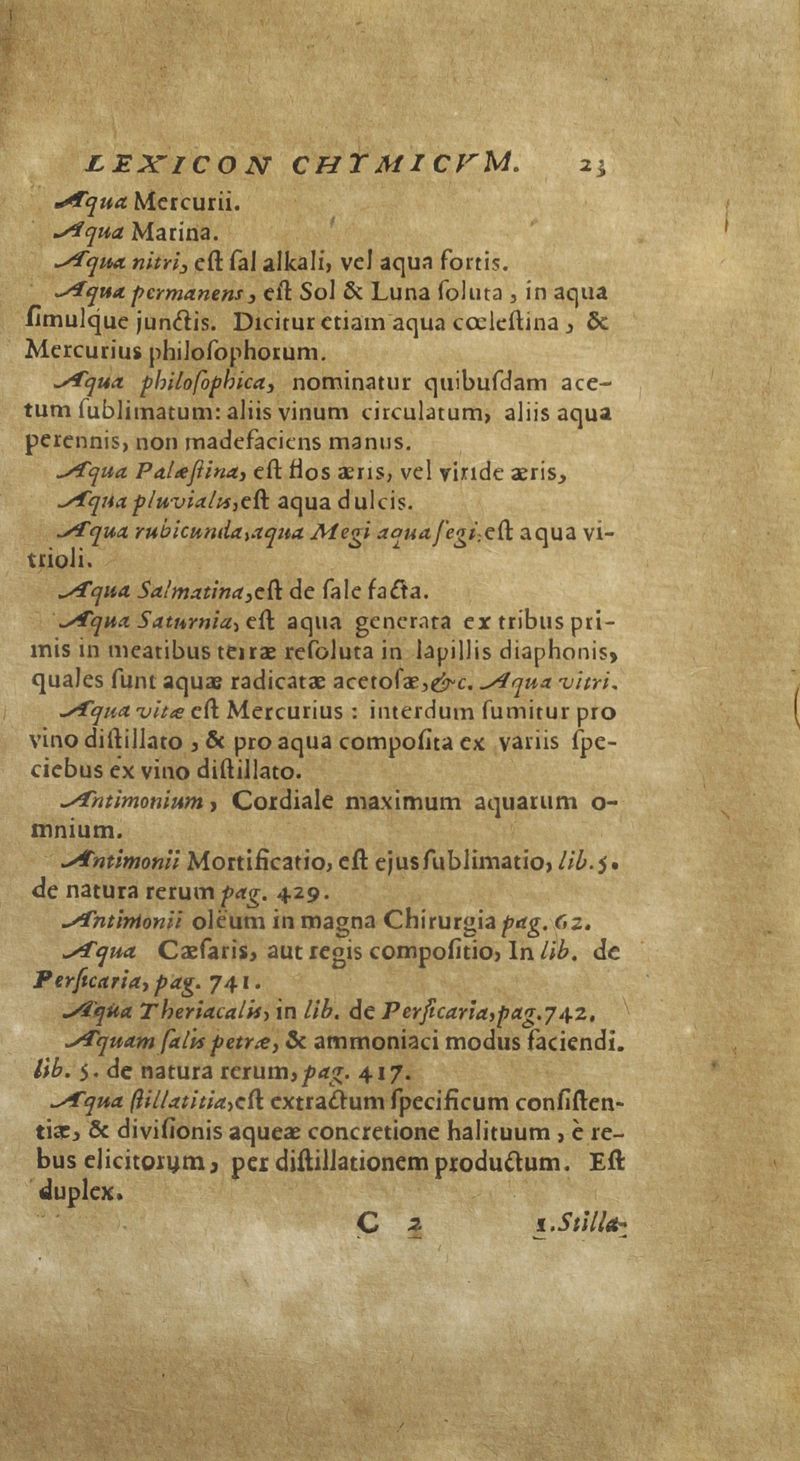 LEXICON CHYMICVM. 23
Aqua Mercurii.
Aqua Marina.
Aqua nitri, eſt ſal alkali, vel aqua fortis.
Aqua permanens, eſt Sol & Luna ſoluta, in aqua
ſimulque junctis. Dicitur etiam aqua cœleſtina, &
Mercurius philoſophorum.
Aqua philoſophica, nominatur quibuſdam ace-
tum ſublimatum: aliis vinum circulatum, aliis aqua
perennis, non madefaciens manus.
Aqua Palæſtina, eſt flos æris, vel viride æris,
Aqua pluvialis, eſt aqua dulcis.
Aqua rubicunda, aqua Megi aqua ſegi. eſt aqua vi-
trioli.
Aqua Salmatina, eſt de ſale facta.
Aqua Saturnia, eſt aqua generata ex tribus pri-
mis in meatibus terræ reſoluta in lapillis diaphonis,
quales ſunt aquæ radicatæ acetoſæ, &c. Aqua vitri.
Aqua vitæ eſt Mercurius : interdum ſumitur pro
vino diſtillato, & pro aqua compoſita ex variis ſpe-
ciebus ex vino diſtillato.
Antimonium, Cordiale maximum aquarum o-
mnium.
Antimonii Mortificatio, eſt ejus ſublimatio, lib. 5.
de natura rerum pag. 429.
Antimonii oleum in magna Chirurgia pag. 62.
Aqua Cæſaris, aut regis compoſitio, In lib. de
Perſicaria, pag. 741.
Aqua Theriacalis, in lib. de Perſicaria, pag. 742,
Aquam ſalis petræ, & ammoniaci modus faciendi.
lib. 5. de natura rerum, pag. 417.
Aqua ſtillatitia, eſt extractum ſpecificum conſiſten-
tiæ, & diviſionis aqueæ concretione halituum, è re-
bus elicitorum, per diſtillationem productum. Eſt
duplex.
C 2 1. Stilla-